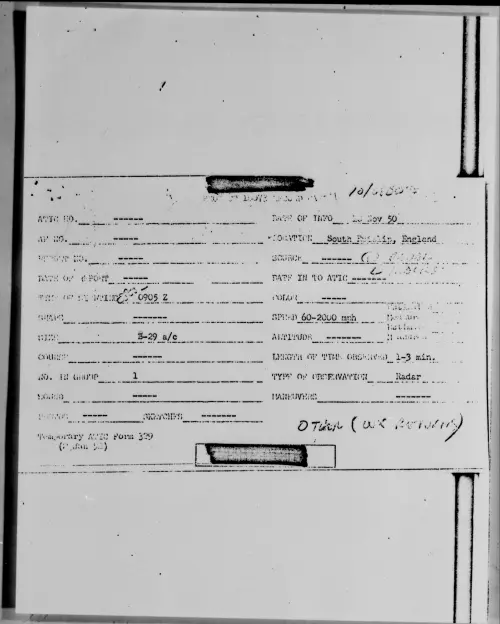 ATIC NO. ------ DATE OF INFO Nov 50
AF NO. ----- LOCATION South Ruislip, England
REPORT NO. ----- SOURCE ------
DATE OF REPORT ----- DATE IN TO ATIC -------
TIME OF SIGHTING 0905 Z COLOR -----
SHAPE ------- SPEED 60-2000 mph
SIZE B-29 a/c ALTITUDE -------
COURSE ------ LENGTH OF TIME OBSERVED 1-3 min.
NO. IN GROUP 1 TYPE OF OBSERVATION Radar
SOUND ----- MANEUVERS -------
PHOTOS ----- SKETCHES -------
OTHER (WX RETURNS)
Temporary ATIC Form 329
(2 Jan 52)